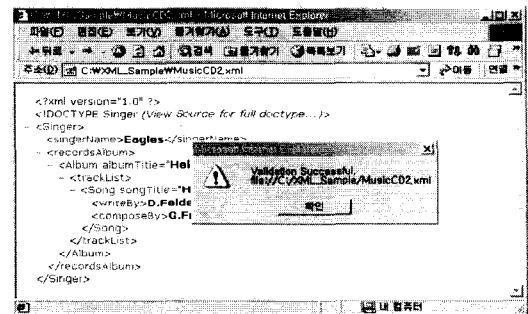 C:\XML_Sample\MusicCD2.xml - Microsoft Internet Explorer
파일(F) 편집(E) 보기(V) 즐겨찾기(A) 도구(T) 도움말(H)
뒤로 검색 즐겨찾기 목록보기
주소(D) C:\XML_Sample\MusicCD2.xml 이동 연결 »
<?xml version="1.0" ?>
<!DOCTYPE Singer (View Source for full doctype...)>
- <Singer>
<singerName>Eagles</singerName>
- <recordsAlbum>
- <Album albumTitle="Hot
- <trackList>
- <Song songTitle="H
<writeBy>D.Felde
<composeBy>G.Fr
</Song>
</trackList>
</Album>
</recordsAlbum>
</Singer>
Validation Successful,
file://C:/XML_Sample/MusicCD2.xml
확인
내 컴퓨터